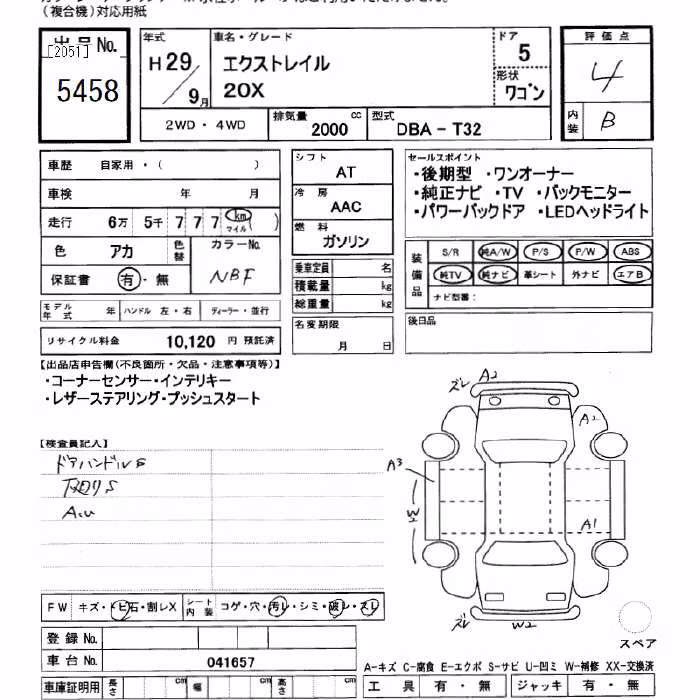 (複合機)対応用紙
出品No.
[2051]
5458
年式
H29/9月
車名・グレード
エクストレイル
20X
ドア
5
形状
ワゴン
評価点
4
内装
B
2WD・4WD
排気量
2000 cc
型式
DBA - T32
車歴 自家用・( )
車検 年 月
走行 6万 5千 7 7 7 km マイル ( )
色 アカ
色替
カラーNo.
NBF
保証書 有・無
シフト
AT
冷房
AAC
燃料
ガソリン
乗車定員 名
積載量 kg
総重量 kg
セールスポイント
・後期型 ・ワンオーナー
・純正ナビ ・TV ・バックモニター
・パワーバックドア ・LEDヘッドライト
装備品
S/R 純A/W P/S P/W ABS
純TV 純ナビ 革シート 外ナビ エアB
ナビ型番:
モデル年式 年 ハンドル 左・右 ディーラー・並行
リサイクル料金 10,120 円 預託済
名変期限
月 日
後日品
【出品店申告欄(不良箇所・欠品・注意事項等)】
・コーナーセンサー・インテリキー
・レザーステアリング・プッシュスタート
【検査員記入】
ドアハンドルS
ズレ A2
A2
A3
W2
A1
ズレ W2
スペア
FW キズ・トビ石・割レX
シート内装 コゲ・穴・汚レ・シミ・破レ・スレ
登録No.
車台No. 041657
A-キズ C-腐食 E-エクボ S-サビ U-凹ミ W-補修 XX-交換済
車庫証明用 長さ cm 幅 cm 高さ cm
工具 有・無 ジャッキ 有・無